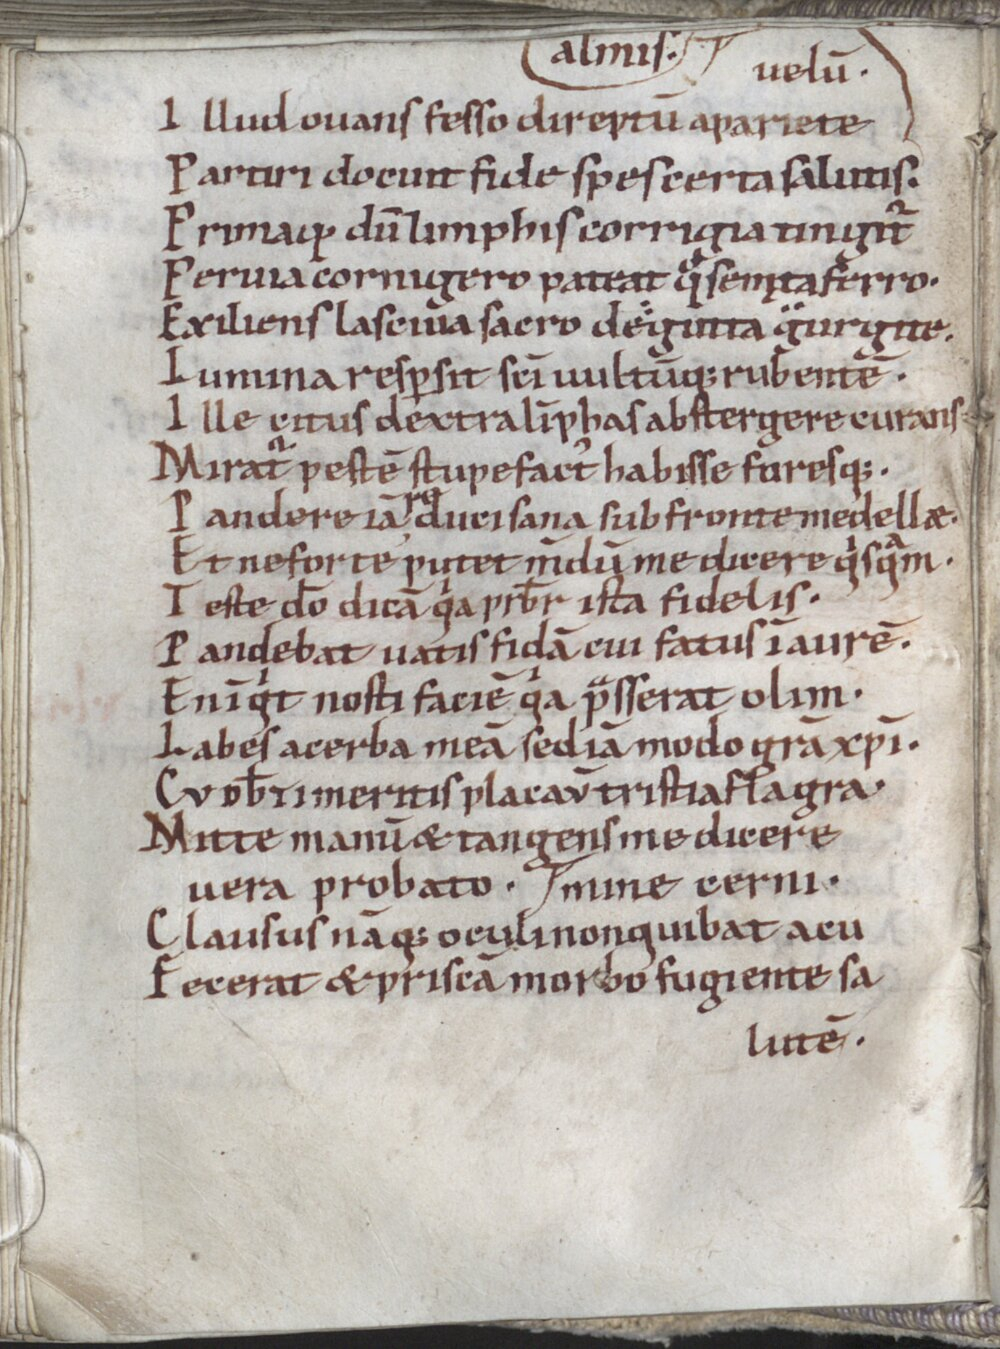 almis.
uelū.
Illud ouans fesso direptū apariete
Partiri docuit fide spes certa salutis.
Primaq; dū limphis corrigia tingit᷑
Peruia cornigero pateat q° semita ferro.
Exiliens lasciua sacro de gutta gurgite.
Lumina respsit sc̄i uultūq; rubentē.
Ille citus dextra līphas abstergere curans
Mirat᷑ pestē stupefact' habisse furesq;.
Pandere iā duci sana sub fronte medellæ.
Et ne forte putet m̄dū me dicere qⁱsqᵃm.
Teste dō dicā qⁱa prb̄r ista fidelis.
Pandebat uatis fidā cui fatus ī aurē.
En īqⁱt nosti faciē qⁱa p̄sserat olim.
Labes acerba meā sed iā modo grā xp̄i.
Cv ob̄ri meritis placav̄ tristia flagra.
Mitte manū & tangens me dicere
uera probato. mine cerni.
Clausus nāq; oculi non quibat acu
Fecerat & priscā morbo fugiente sa
lutē.